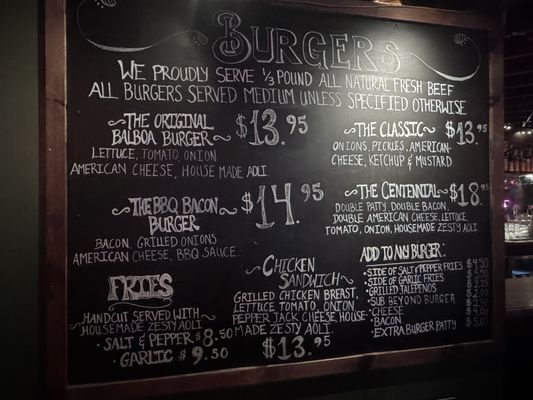 BURGERS
WE PROUDLY SERVE 1/3 POUND ALL NATURAL FRESH BEEF
ALL BURGERS SERVED MEDIUM UNLESS SPECIFIED OTHERWISE
~THE ORIGINAL
BALBOA BURGER~ $13.95
LETTUCE, TOMATO, ONION
AMERICAN CHEESE, HOUSE MADE AOLI.
~THE BBQ BACON~
BURGER $14.95
BACON, GRILLED ONIONS
AMERICAN CHEESE, BBQ SAUCE.
FRIES
HANDCUT SERVED WITH
~HOUSEMADE ZESTY AOLI~
• SALT & PEPPER $8.50
• GARLIC $9.50
~CHICKEN
SANDWICH~
GRILLED CHICKEN BREAST,
LETTUCE TOMATO, ONION
PEPPER JACK CHEESE, HOUSE-
MADE ZESTY AOLI.
$13.95
~THE CLASSIC~ $13.95
ONIONS, PICKLES, AMERICAN-
CHEESE, KETCHUP & MUSTARD
~THE CENTENNIAL~ $18.95
DOUBLE PATTY DOUBLE BACON
DOUBLE AMERICAN CHEESE, LETTUCE,
TOMATO, ONION, HOUSEMADE ZESTY AOLI.
ADD TO ANY BURGER:
• SIDE OF SALT & PEPPER FRIES $4.50
• SIDE OF GARLIC FRIES $5.50
• GRILLED JALEPENOS
• SUB BEYOND BURGER
• CHEESE
• BACON $4.00
• EXTRA BURGER PATTY $5.00